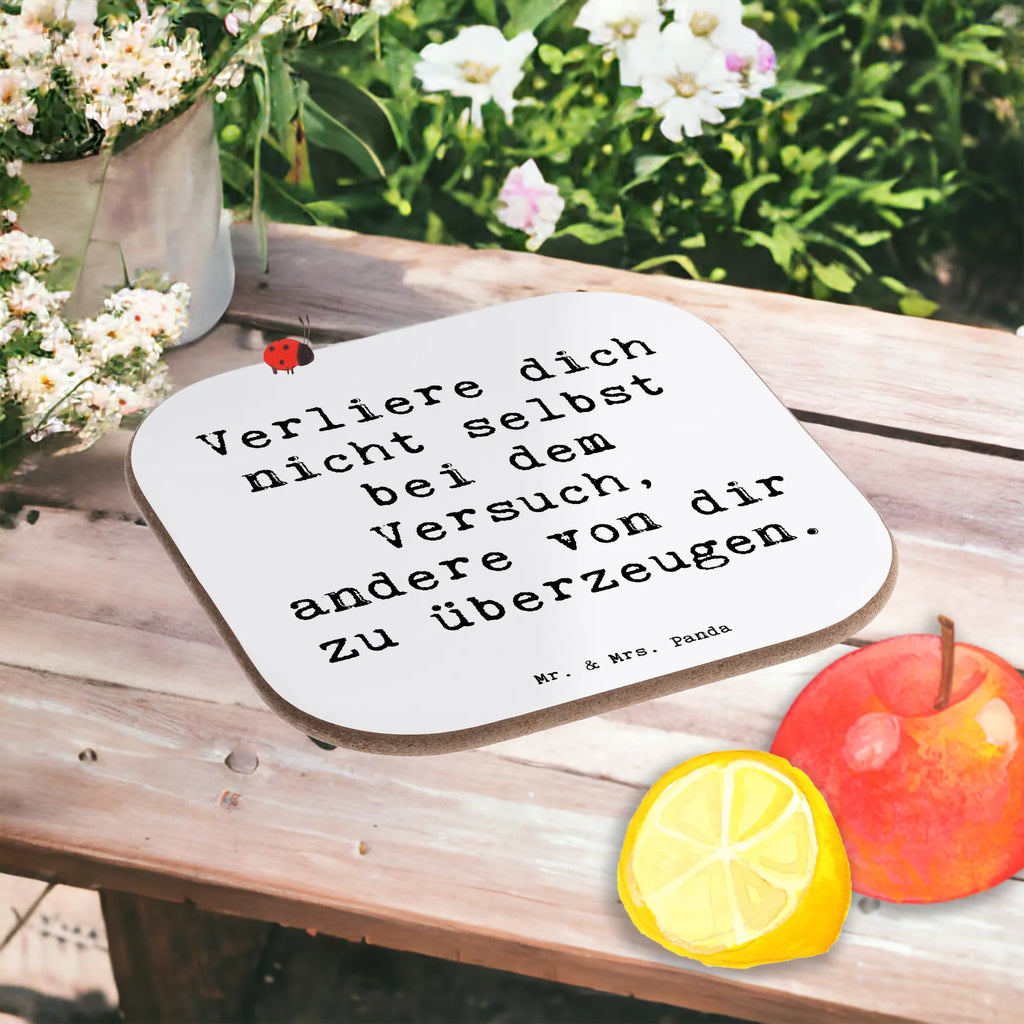 Verliere dich
nicht selbst
bei dem
Versuch,
andere von dir
zu überzeugen.
Mr. & Mrs. Panda